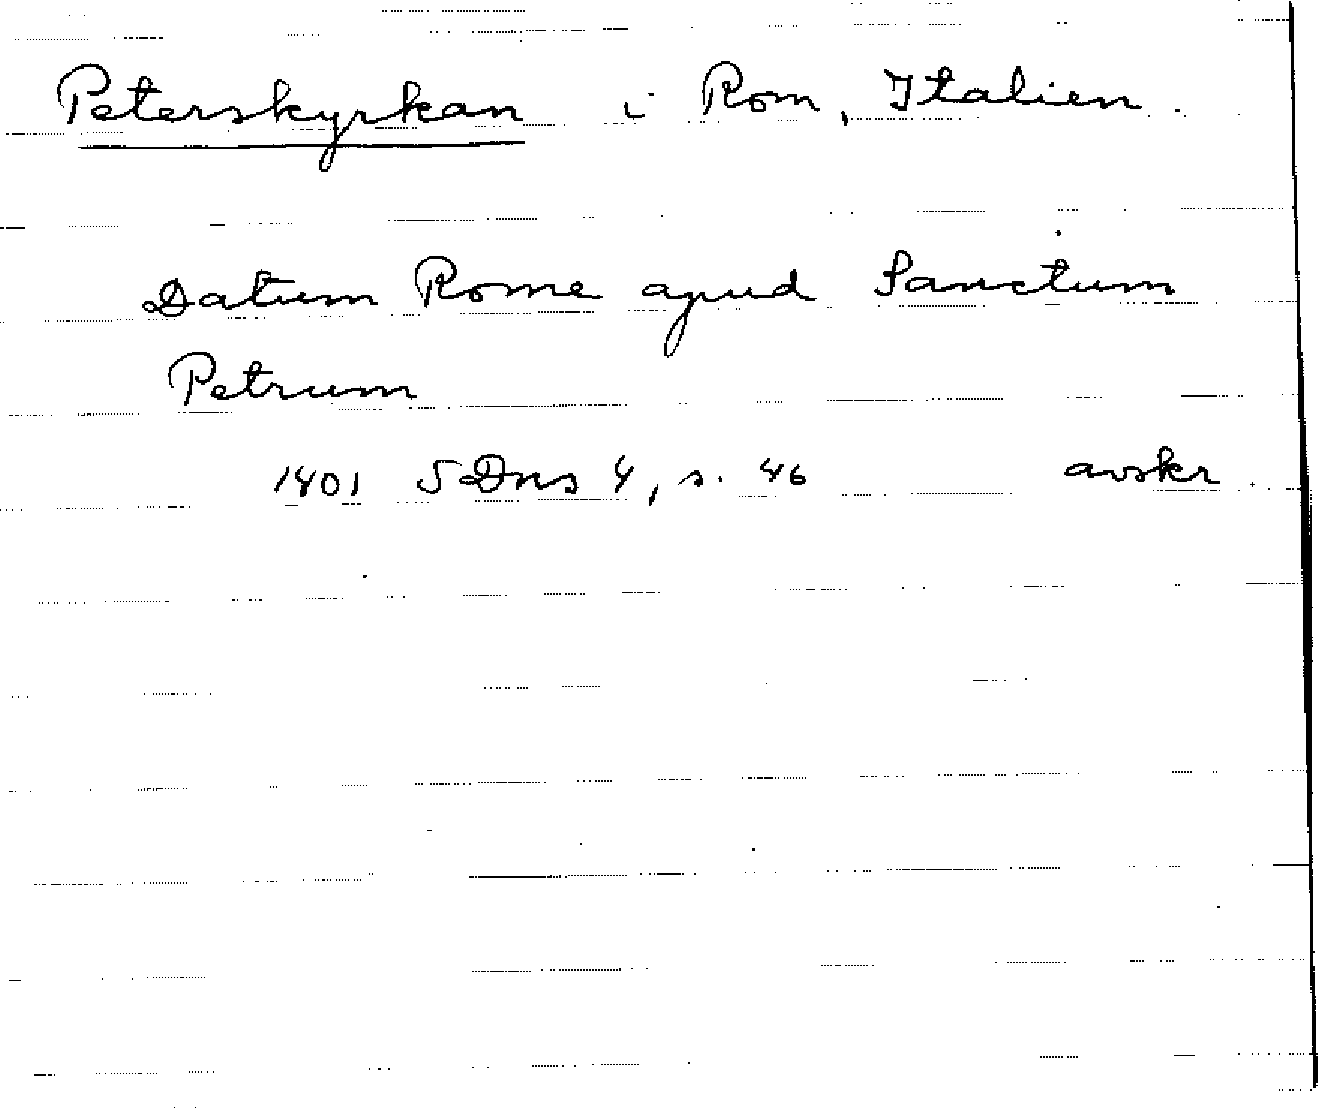 Peterskyrkan i Rom, Italien.
Datum Rome apud Sanctum
Petrum
1401 SDns 4, s. 46 avskr